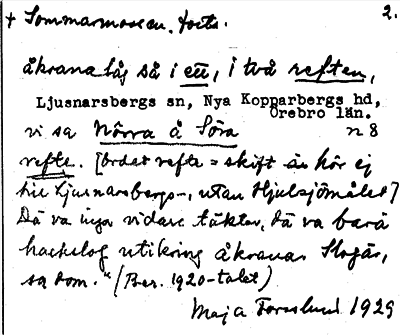 + Sommarmossen, forts. 2.
åkrana låg så i ett, i två reften,
Ljusnarsbergs sn, Nya Kopparbergs hd,
Örebro län.
vi sa Nôrra å Söra n 8
refte. [Ordet refte = skift än hör ej
till Ljusnarsbergs-, utan Hjulsjömålet]
Dä va inga vidare täkter, dä va bara
hackslog utikring åkranas. Slogär,
sa dom." (Ber. 1920-talet)
Maja Forsslund 1929